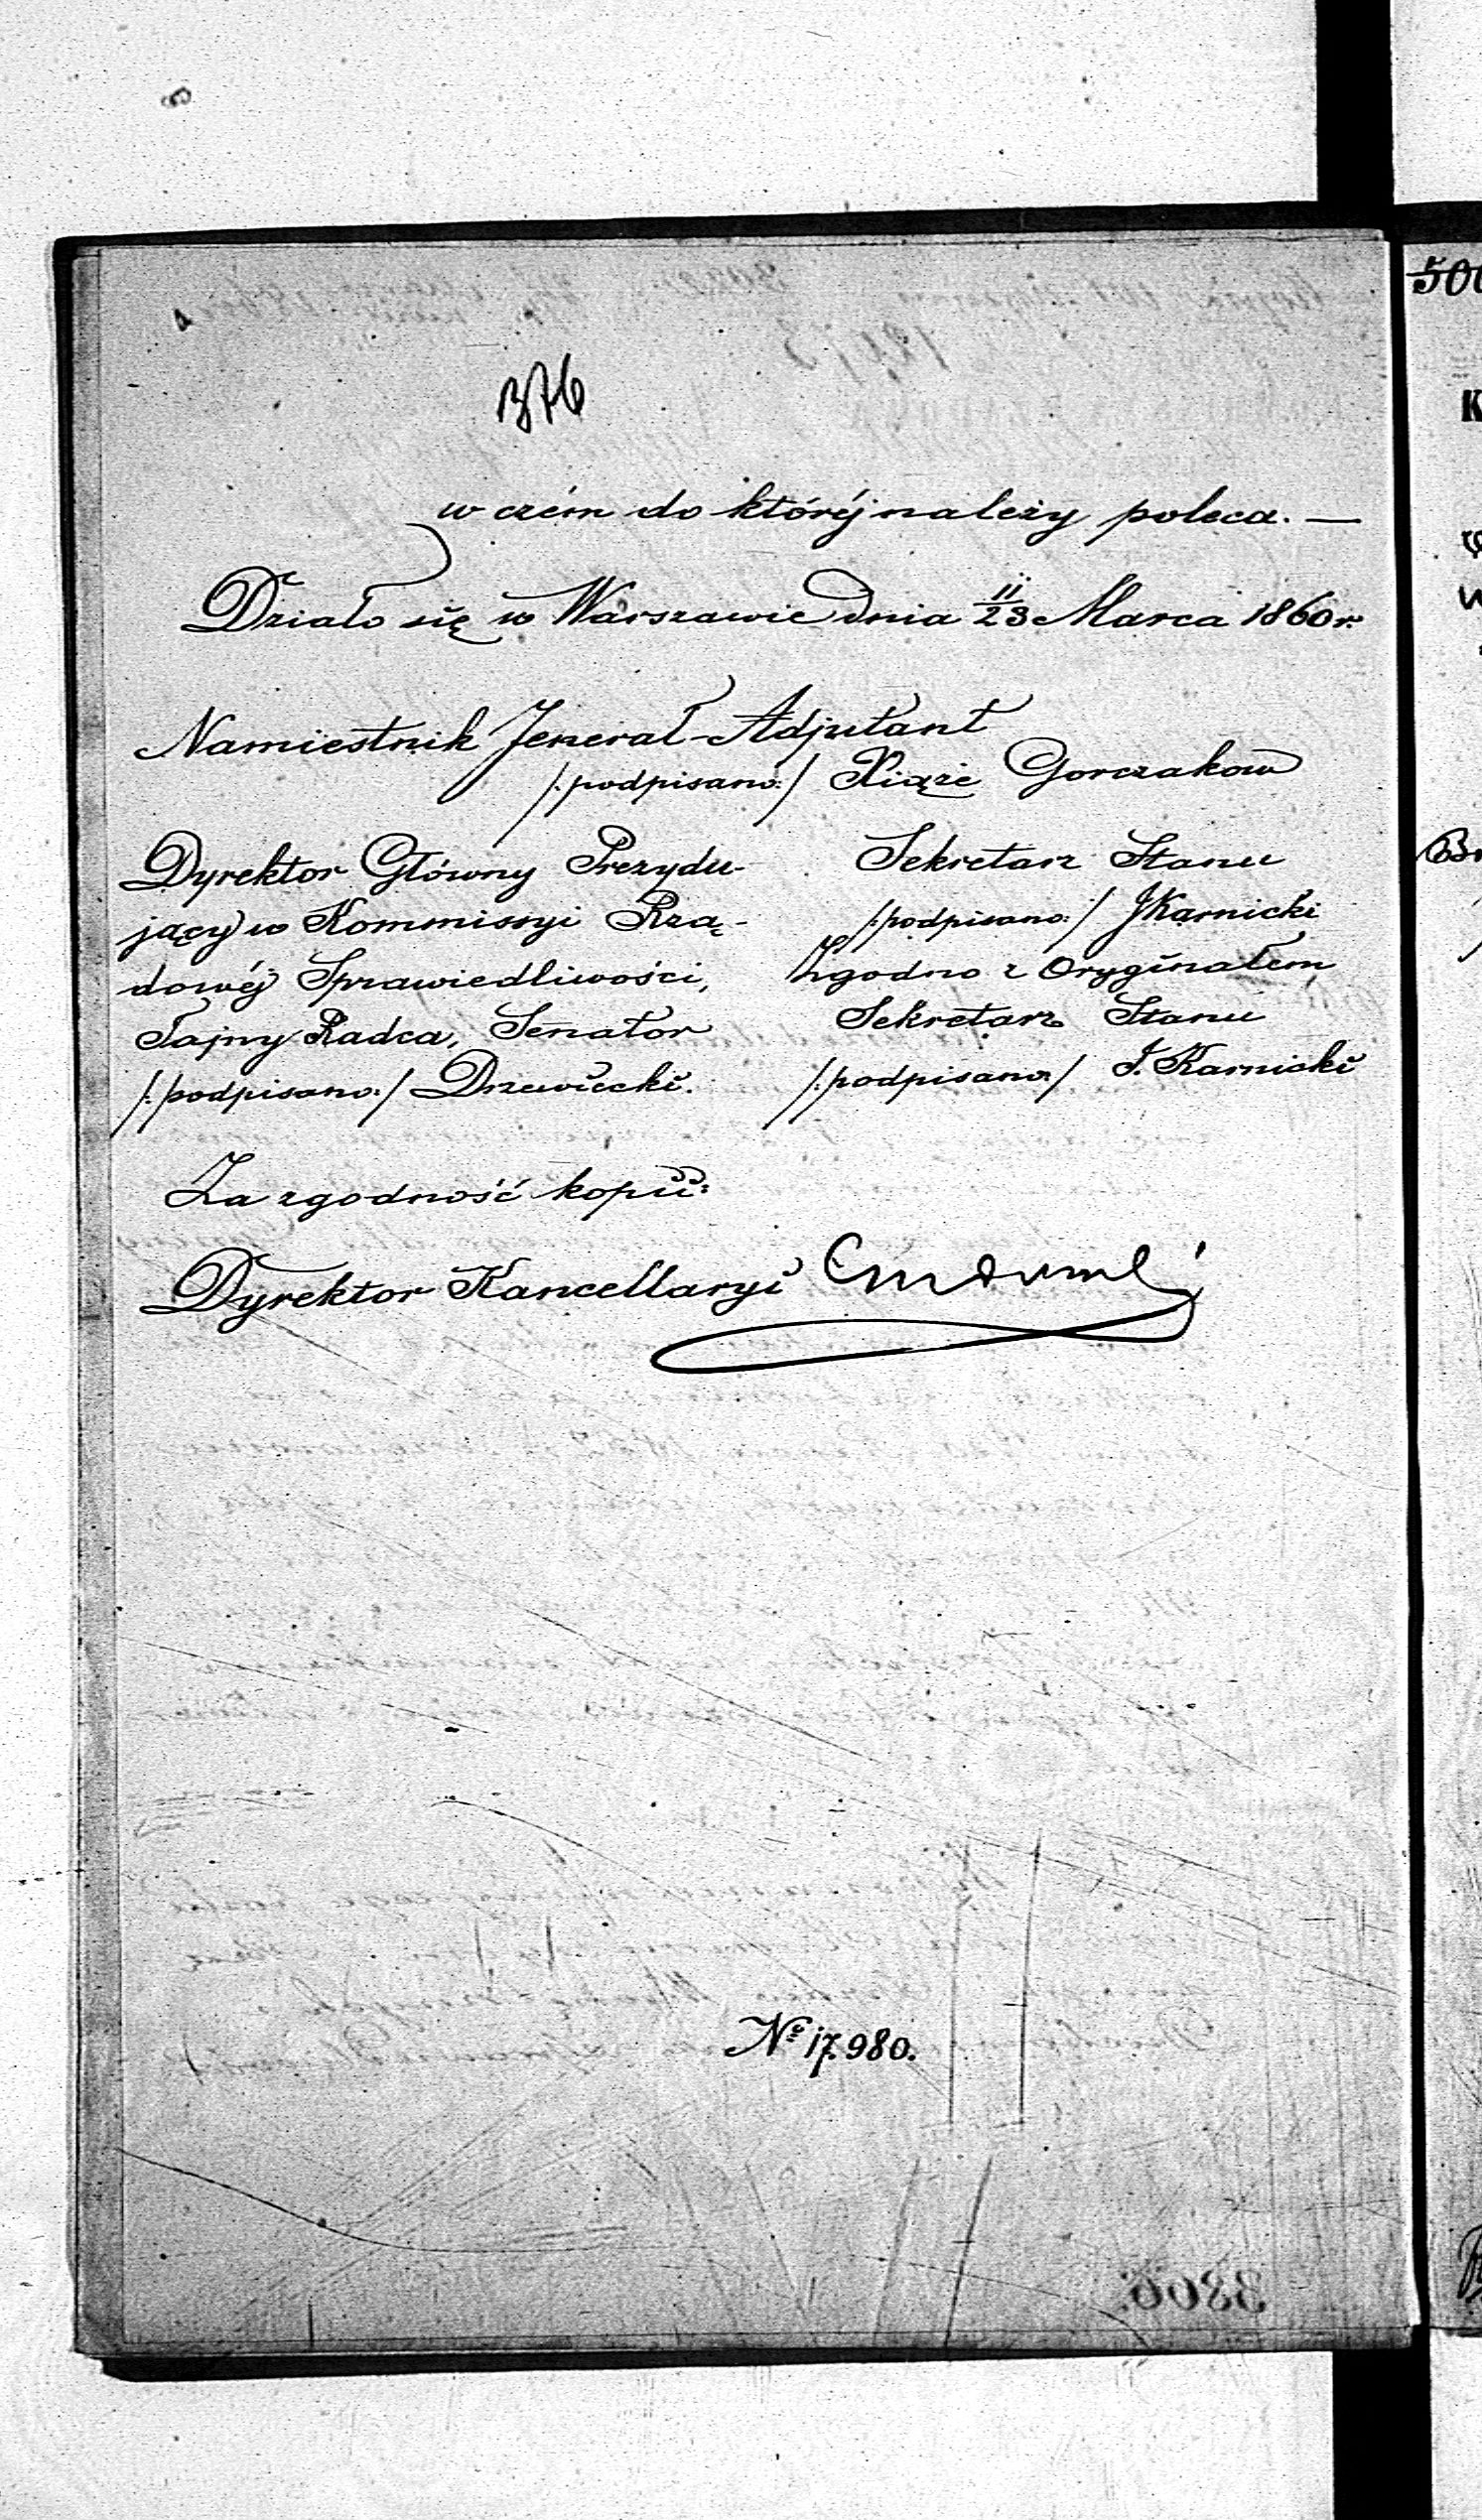 376
w czém do któréj należy poleca. —
Działo się w Warszawie dnia 11/23 Marca 1860 r.
Namiestnik Jenerał-Adjutant
/:podpisano:/ Xiąże Gorczakow
Dyrektor Główny Prezydu-
jący w Kommissyi Rzą-
dowéj Sprawiedliwości,
Tajny Radca, Senator
/:podpisano:/ Drzewiecki.
Sekretarz Stanu
/:podpisano:/ J Karnicki
Zgodno z Oryginałem
Sekretarz Stanu
/:podpisano:/ J. Karnicki
Za zgodność kopii:
Dyrektor Kancellaryi
№ 17.980.